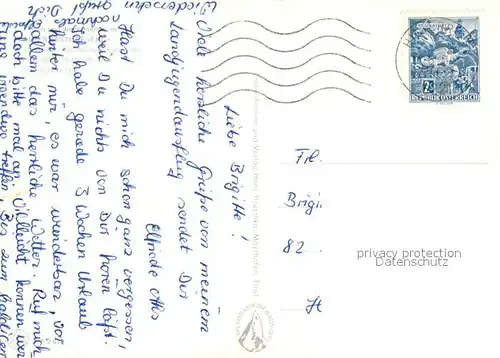 Liebe Brigitte!
Viele herzliche Grüße von meinem
Landjugendausflug sendet Dir
Elfriede
Hast Du mich schon ganz vergessen,
weil Du nichts von Dir hören läßt.
Ich habe gerade 3 Wochen Urlaub
hinter mir, es war wunderbar, vor
allem das herrliche Wetter. Ruf mich
doch bitte mal an. Vielleicht können wir
uns irgendwo treffen. Bis zum baldigen
Wiedersehn grüßt Dich
nochmals
Frl.
Brigi
82
H
privacy protection
Datenschutz
REPUBLIK ÖSTERREICH